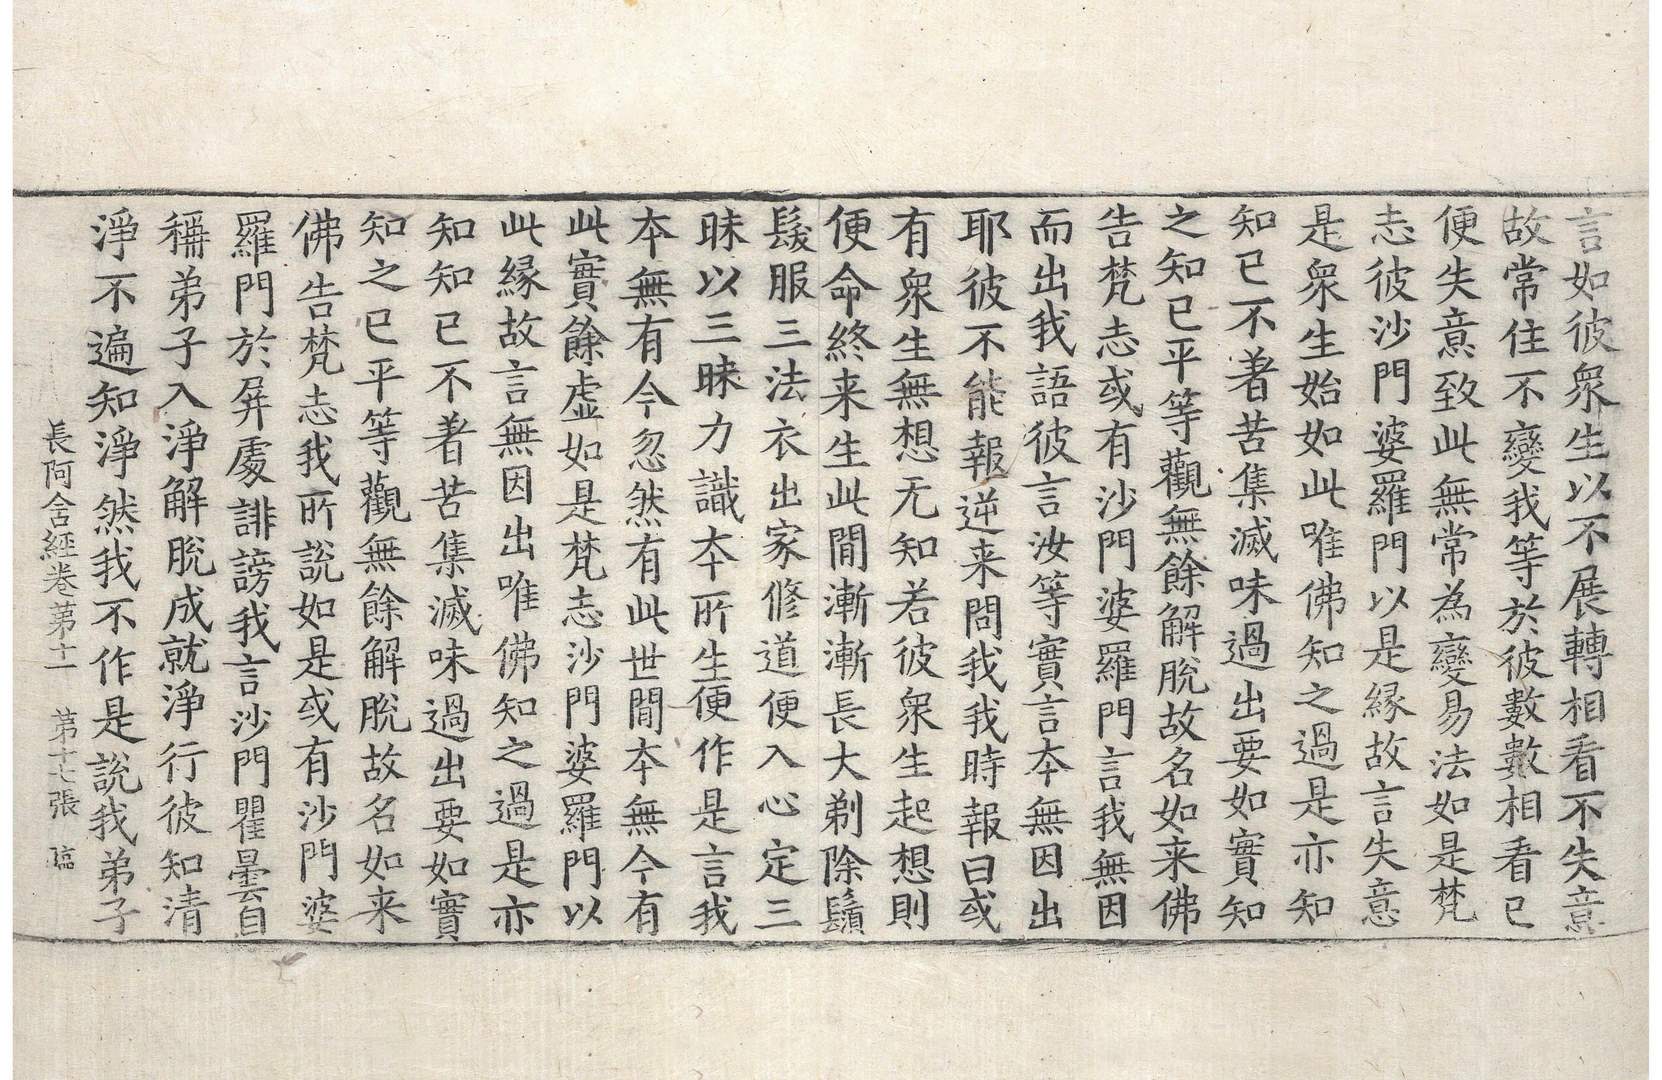 言如彼衆生以不展轉相看不失意
故常住不變我等於彼數數相看已
便失意致此無常為變易法如是梵
志彼沙門婆羅門以是緣故言失意
是衆生始如此唯佛知之過是亦知
知已不著苦集滅味過出要如實知
之知已平等觀無餘解脫故名如来佛
告梵志或有沙門婆羅門言我無因
而出我語彼言汝等實言夲無因出
耶彼不能報逆来問我我時報曰或
有衆生無想无知若彼衆生起想則
便命終来生此閒漸漸長大剃除鬚
髮服三法衣出家修道便入心定三
昧以三昧力識夲所生便作是言我
夲無有今忽然有此世閒夲無今有
此實餘虛如是梵志沙門婆羅門以
此緣故言無因出唯佛知之過是亦
知知已不著苦集滅味過出要如實
知之已平等觀無餘解脫故名如来
佛告梵志我所說如是或有沙門婆
羅門於屏處誹謗我言沙門瞿曇自
稱弟子入淨解脫成就淨行彼知清
淨不遍知淨然我不作是說我弟子
長阿含經卷第十一 第十七張 臨